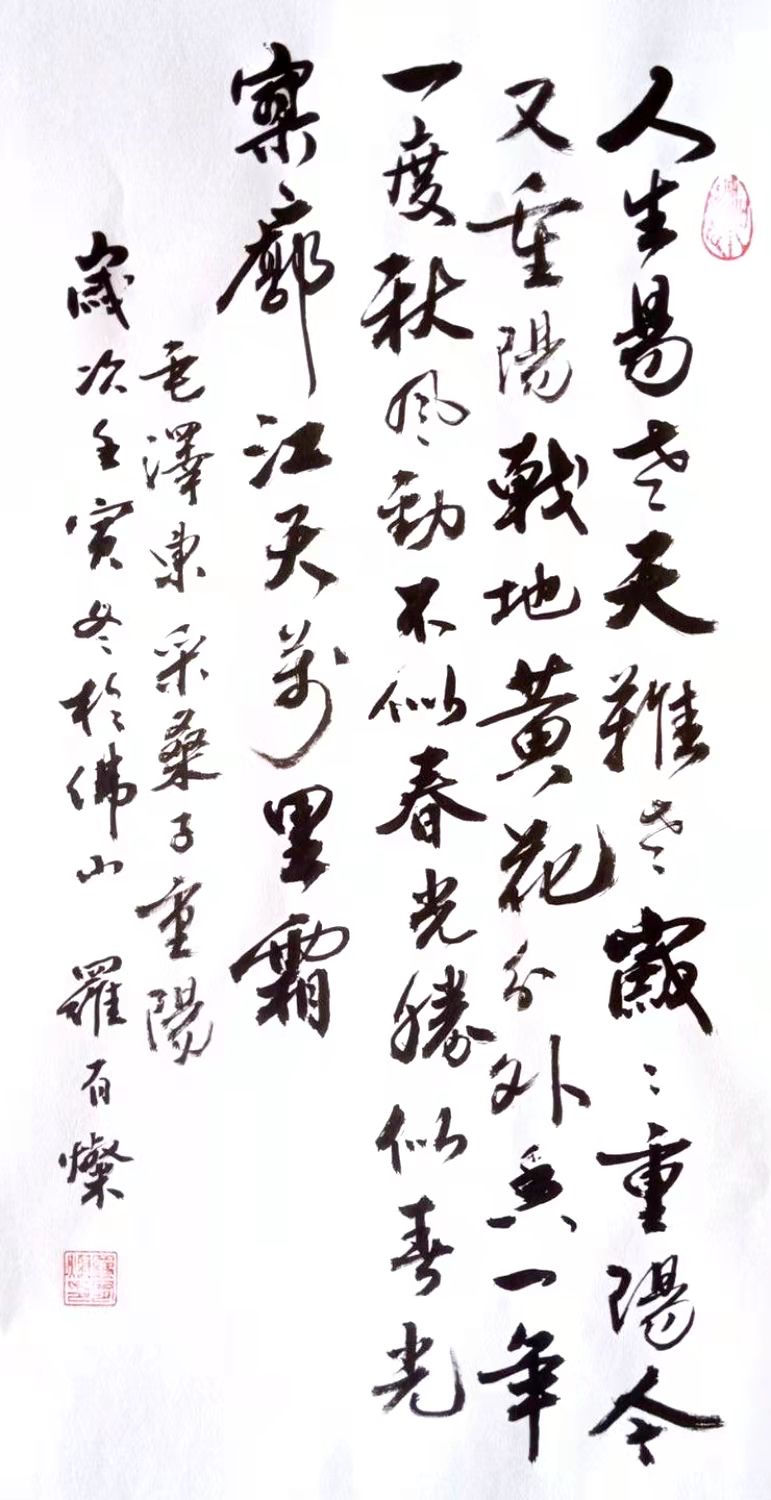 人生易老天難老歲〻重陽今
又重陽戰地黃花分外香一年
一度秋風勁不似春光勝似春光
寥廓江天萬里霜
毛澤東采桑子重陽
歲次壬寅冬於佛山 羅百燦